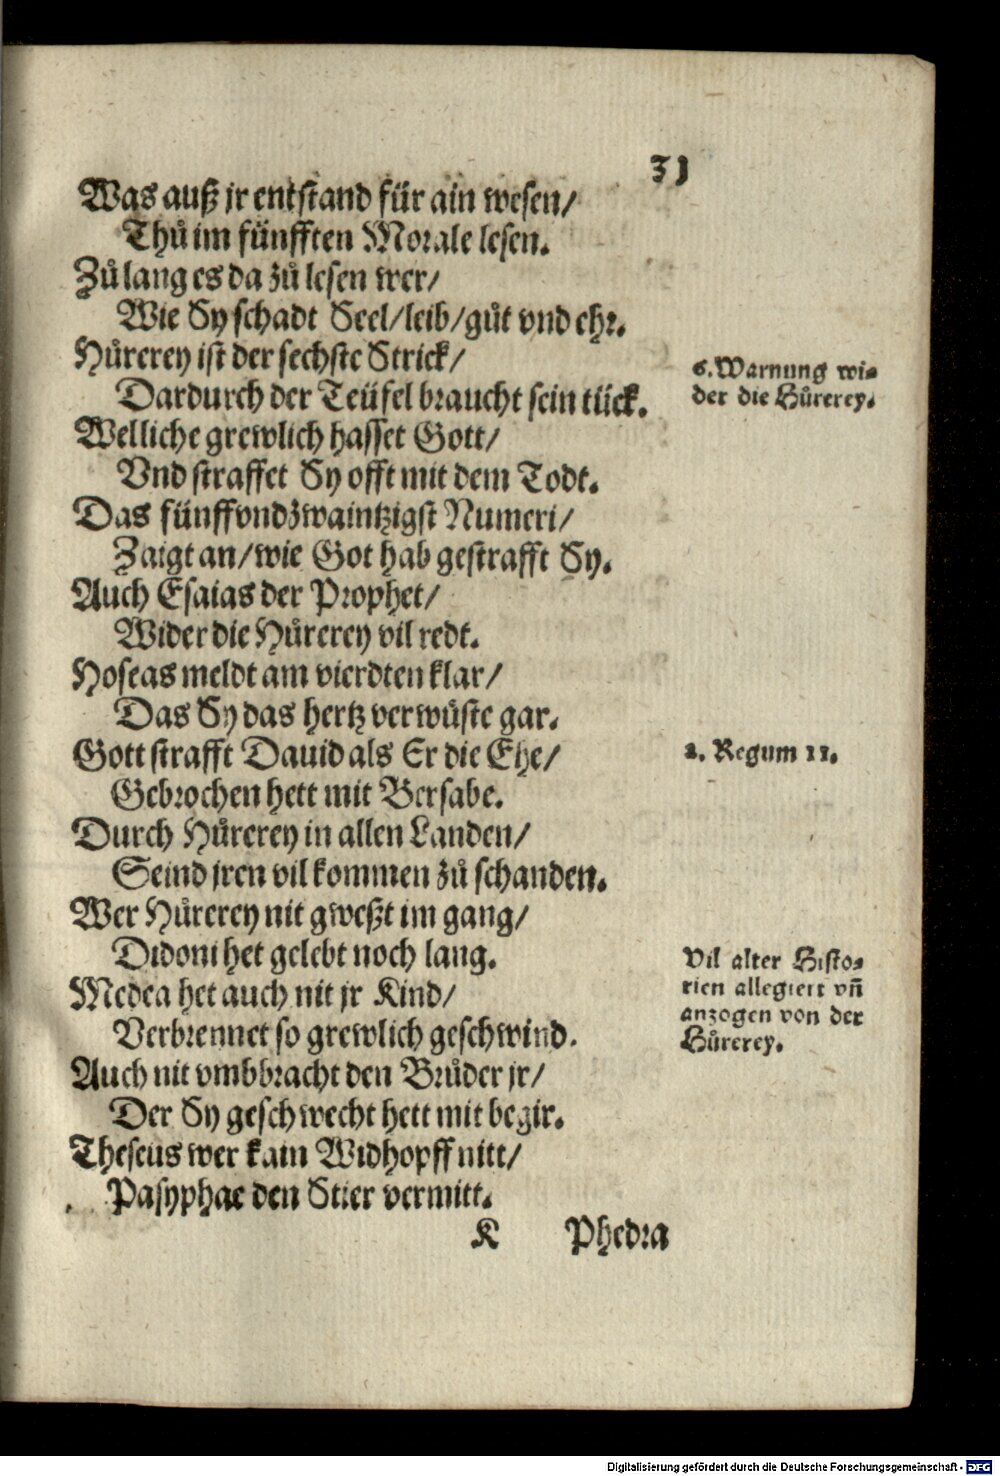 31
Was auß jr entstand für ain wesen/
Thů im fünfften Morale lesen.
Zů lang es da zů lesen wer/
Wie Sy schadt Seel/leib/gůt vnd ehr.
Hůrerey ist der sechste Strick/
Dardurch der Teüfel braucht sein tück.
6. Warnung wi=
der die Hůrerey.
Welliche grewlich hasset Gott/
Vnd straffet Sy offt mit dem Todt.
Das fünffvndzwaintzigst Numeri/
Zaigt an/wie Got hab gestrafft Sy.
Auch Esaias der Prophet/
Wider die Hůrerey vil redt.
Hoseas meldt am vierdten klar/
Das Sy das hertz verwüste gar.
Gott strafft Dauid als Er die Ehe/
2. Regum 11.
Gebrochen hett mit Bersabe.
Durch Hůrerey in allen Landen/
Seind jren vil kommen zů schanden.
Wer Hůrerey nit gweßt im gang/
Didoni het gelebt noch lang.
Vil alter Histo=
rien allegiert vñ
anzogen von der
Hůrerey.
Medea het auch nit jr Kind/
Verbrennet so grewlich geschwind.
Auch nit vmbbracht den Brůder jr/
Der Sy geschwecht hett mit begir.
Theseus wer kain Widhopff nitt/
Pasyphae den Stier vermitt.
K Phedra
Digitalisierung gefördert durch die Deutsche Forschungsgemeinschaft - DFG